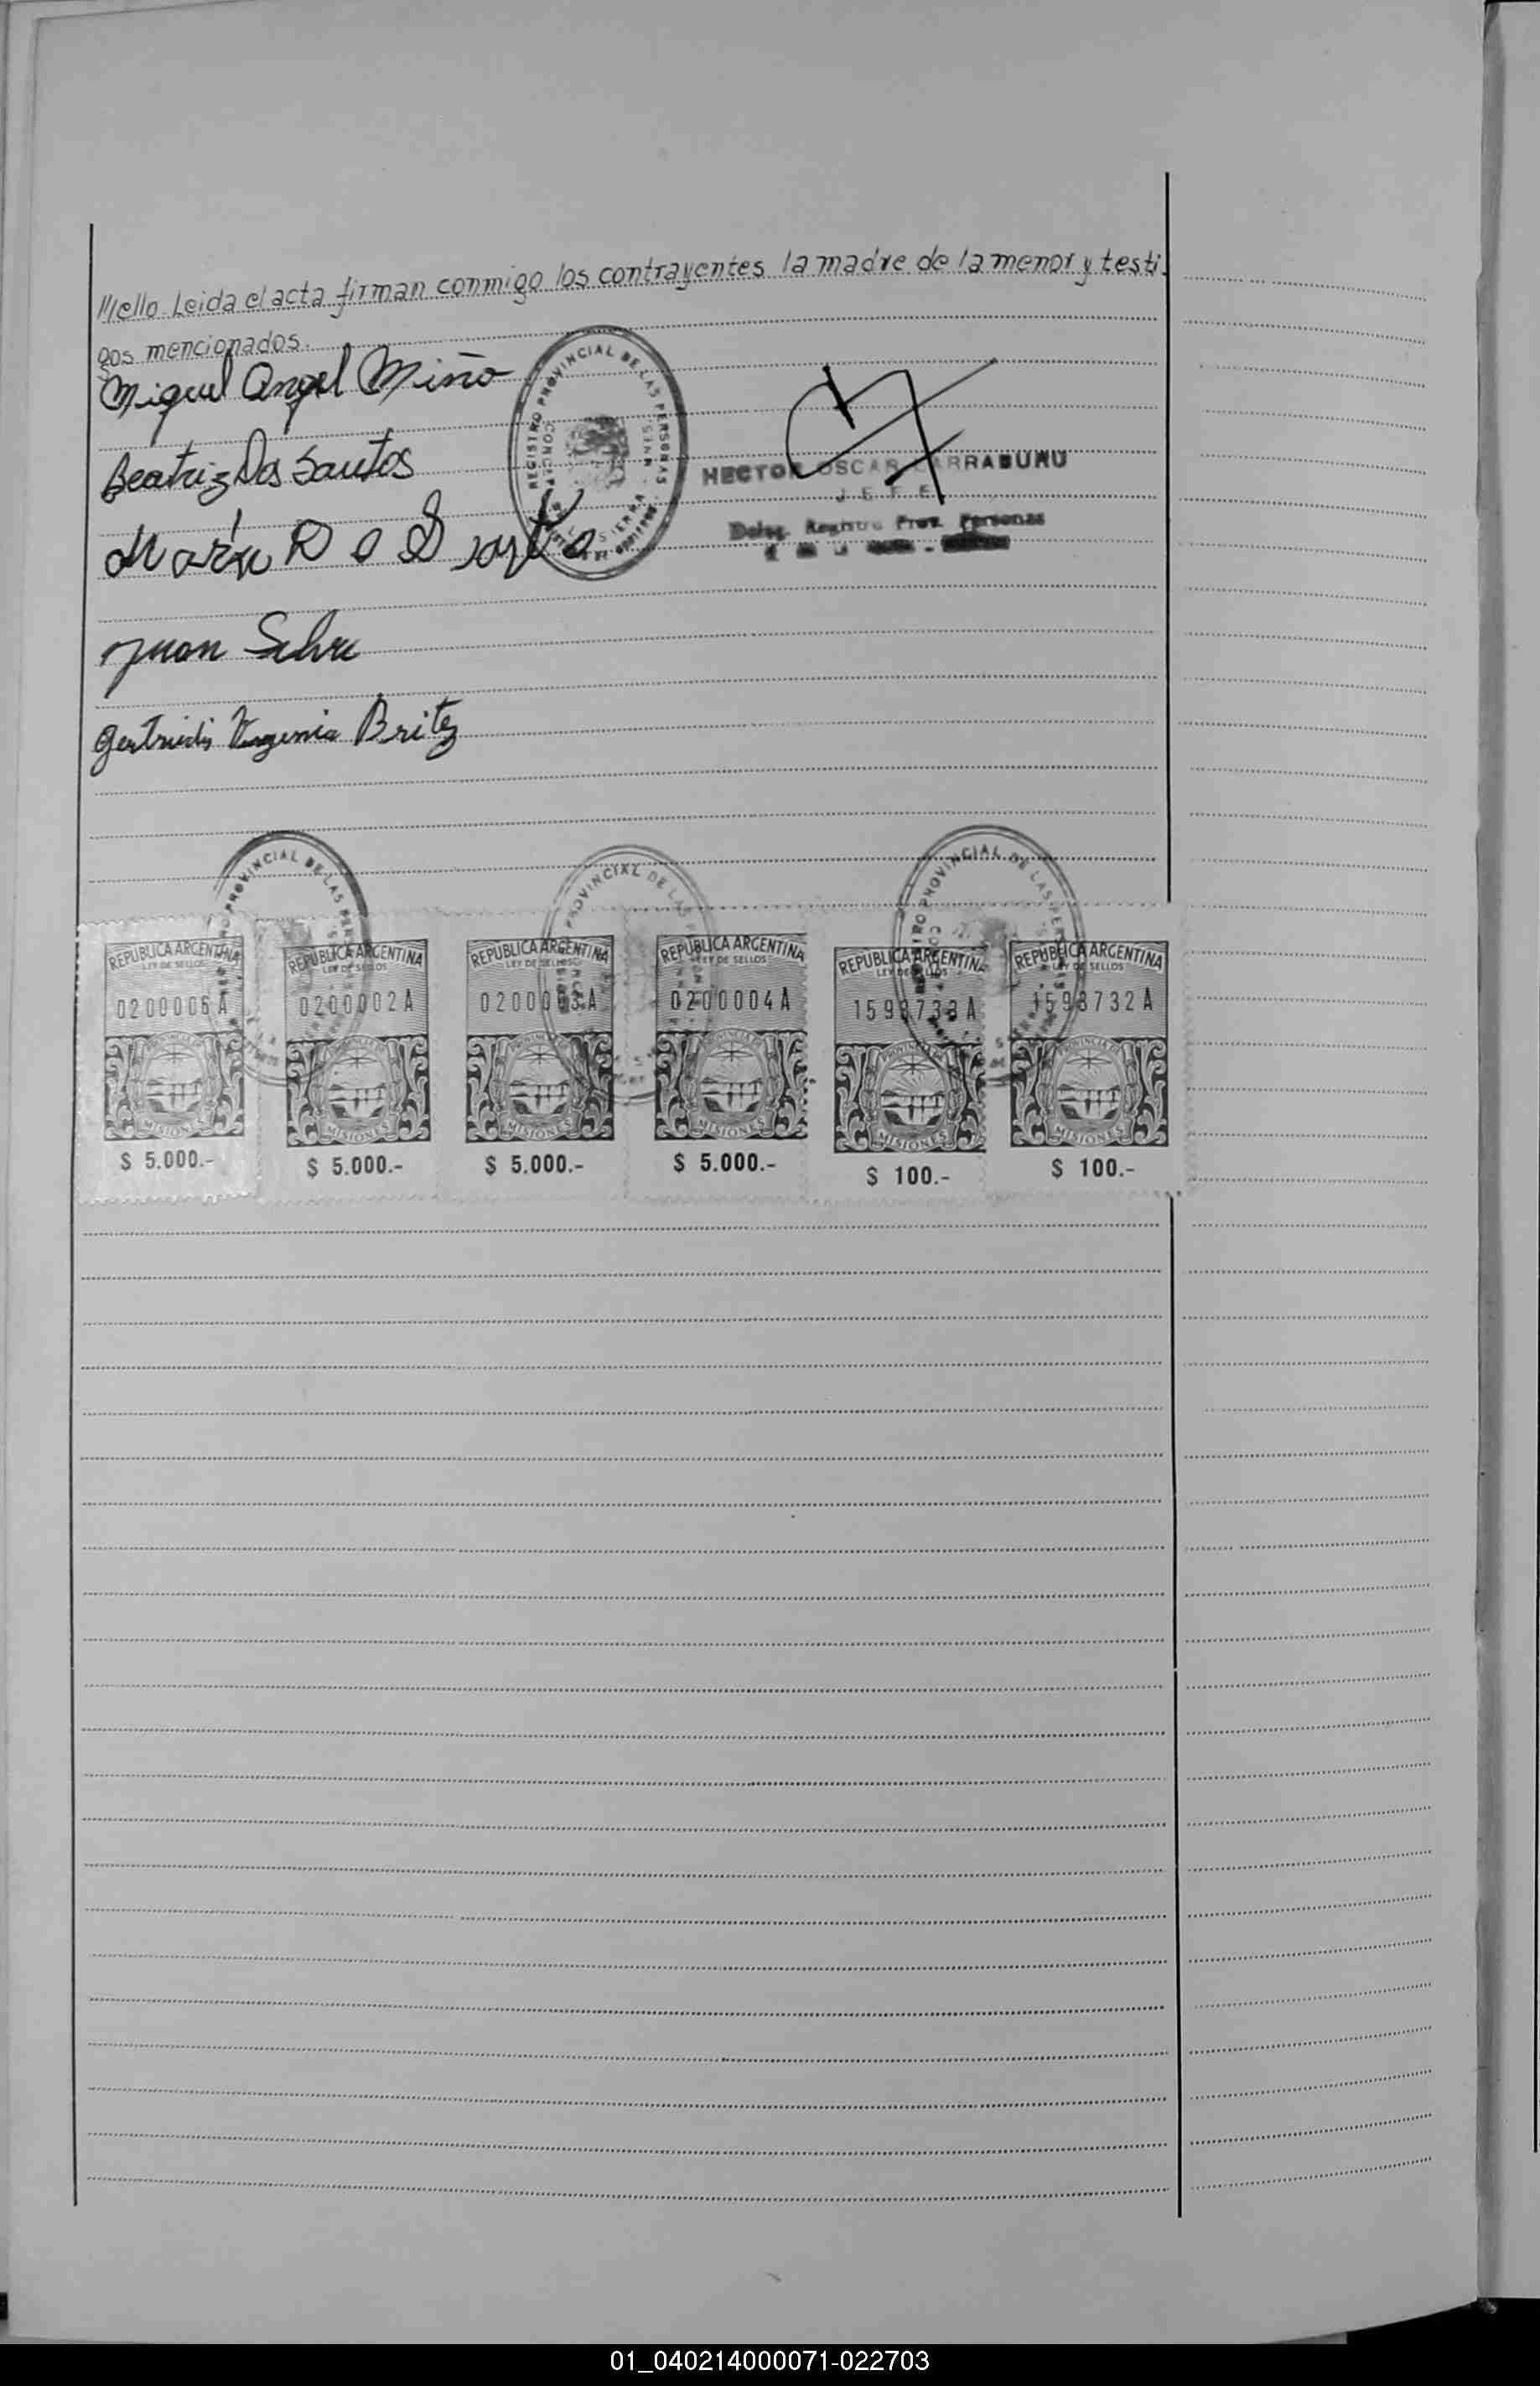 Mello. Leida el acta firman conmigo los contrayentes la madre de la menor y testi
gos mencionados.
Miguel Angel Miño
Beatriz Dos Santos
María D o S santo
Juan Silva
Gertrudis Virginia Britez
REGISTRO PROVINCIAL DE LAS PERSONAS
HECTOR OSCAR ARRABURU
JEFE
Deleg. Registro Prov. Personas
PROVINCIAL DE LAS
PROVINCIAL DE LAS
PROVINCIAL DE LAS
REPUBLICA ARGENTINA
LEY DE SELLOS
0200006 A
MISIONES
$ 5.000.-
REPUBLICA ARGENTINA
LEY DE SELLOS
0200002 A
MISIONES
$ 5.000.-
REPUBLICA ARGENTINA
LEY DE SELLOS
0200003 A
MISIONES
$ 5.000.-
REPUBLICA ARGENTINA
LEY DE SELLOS
0200004 A
MISIONES
$ 5.000.-
REPUBLICA ARGENTINA
LEY DE SELLOS
1598733 A
MISIONES
$ 100.-
REPUBLICA ARGENTINA
LEY DE SELLOS
1598732 A
MISIONES
$ 100.-
01_040214000071-022703